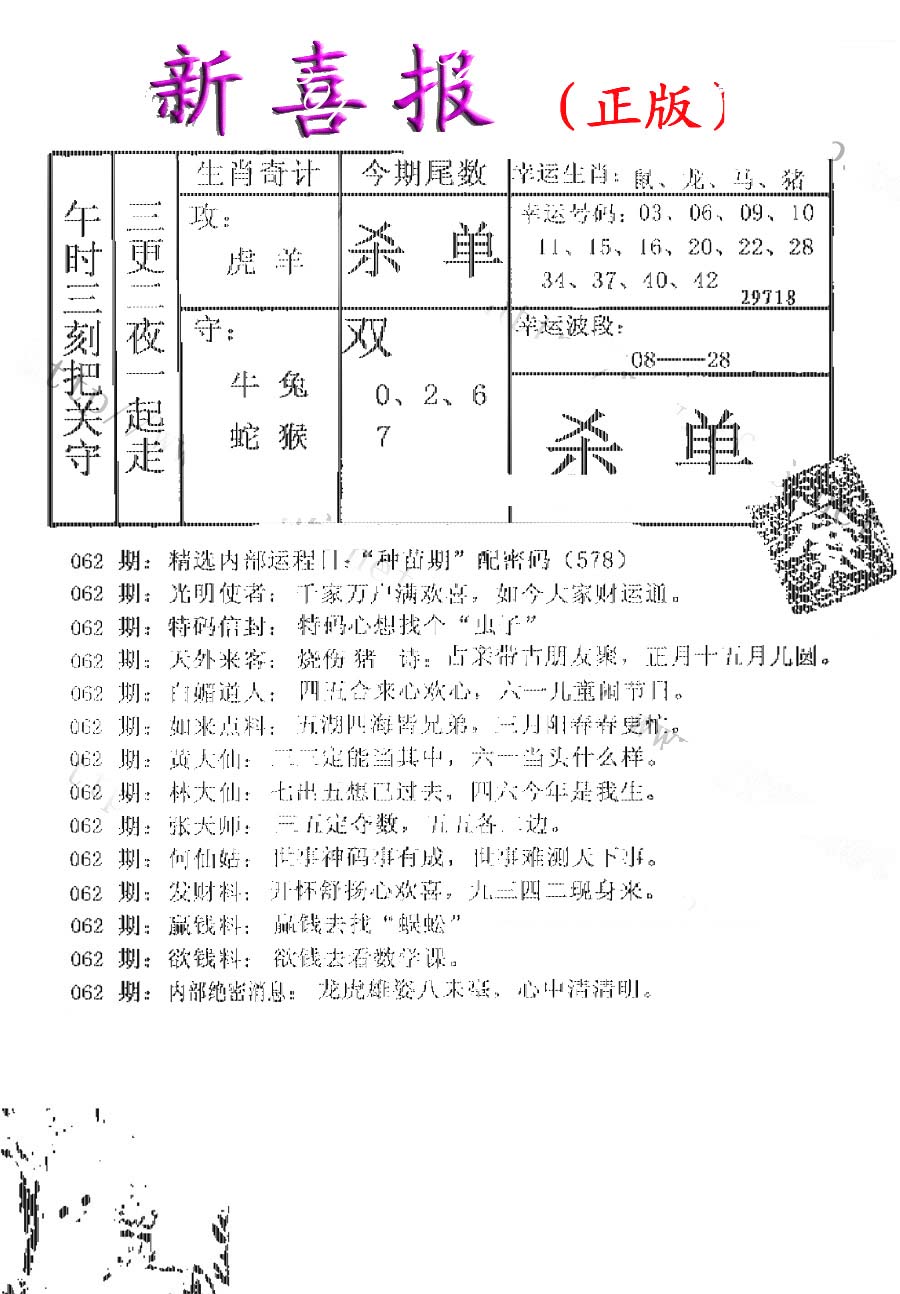 新喜报（正版）
午时三刻把关守
三更二夜一起走
生肖奇计
攻：
虎 羊
守：
牛 兔
蛇 猴
今期尾数
杀 单
双
0、2、6
7
幸运生肖：鼠、龙、马、猪
幸运号码：03、06、09、10
11、15、16、20、22、28
34、37、40、42
29718
幸运波段：
08——28
杀 单
062 期：精选内部运程日：“种苗期”配密码（578）
062 期：光明使者：千家万户满欢喜，如今大家财运通。
062 期：特码信封：特码心想找个“虫子”
062 期：天外来客：烧伤猪 诗：占亲带古朋友聚，正月十五月儿圆。
062 期：白媚道人：四五合来心欢心，六一儿童闹节日。
062 期：如来点料：五湖四海皆兄弟，三月阳春春更忙。
062 期：黄大仙：二三定能当其中，六一当头什么样。
062 期：林大仙：七出五想已过去，四六今年是我生。
062 期：张天师：三五定夺数，五五各二边。
062 期：何仙姑：世事神码事有成，世事难测天下事。
062 期：发财料：开怀舒扬心欢喜，九三四二现身来。
062 期：赢钱料：赢钱去找“蜈蚣”
062 期：欲钱料：欲钱去看数学课。
062 期：内部绝密消息：龙虎雄姿八来 ，心中清清明。